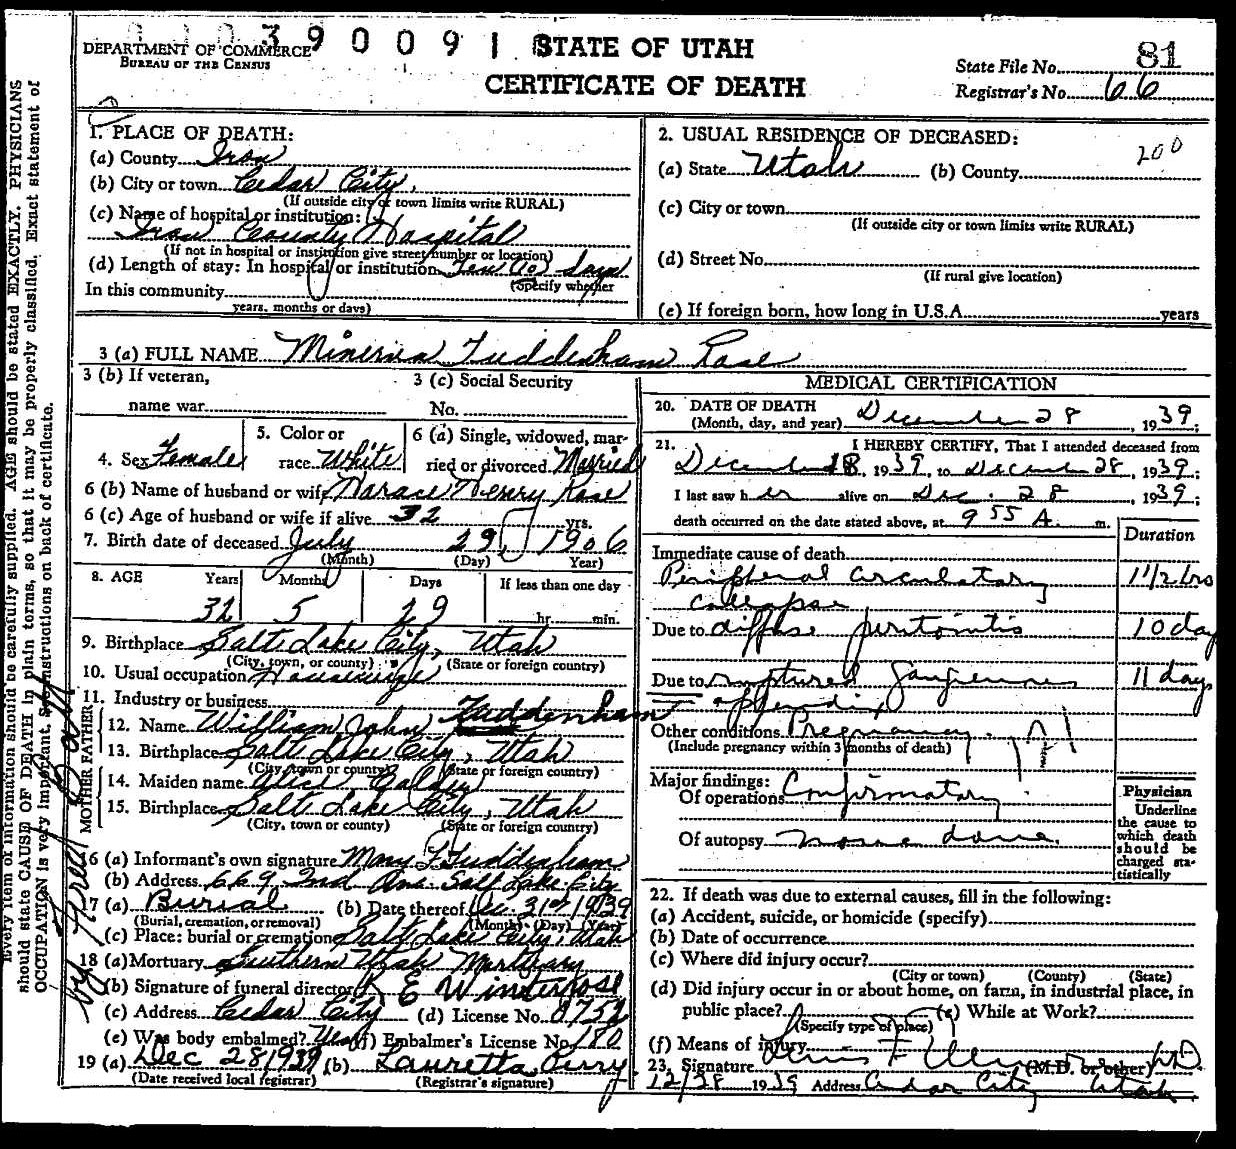 390091
STATE OF UTAH
CERTIFICATE OF DEATH
DEPARTMENT OF COMMERCE
BUREAU OF THE CENSUS
State File No. 81
Registrar's No. 66
1. PLACE OF DEATH:
(a) County Iron
(b) City or town Cedar City,
(If outside city or town limits write RURAL)
(c) Name of hospital or institution:
Iron County Hospital
(If not in hospital or institution give street number or location)
(d) Length of stay: In hospital or institution Ten (10) days
(Specify whether
In this community
years, months or days)
2. USUAL RESIDENCE OF DECEASED:
200
(a) State Utah (b) County
(c) City or town
(If outside city or town limits write RURAL)
(d) Street No.
(If rural give location)
(e) If foreign born, how long in U.S.A. years
3 (a) FULL NAME Minerva Tuddenham Rose
3 (b) If veteran,
name war
3 (c) Social Security
No.
4. Sex Female
5. Color or
race White
6 (a) Single, widowed, mar-
ried or divorced Married
6 (b) Name of husband or wife Horace Henry Rose
6 (c) Age of husband or wife if alive 32 yrs.
7. Birth date of deceased July 29, 1906
(Month) (Day) Year)
8. AGE Years Months Days If less than one day
32 5 29 hr. min.
9. Birthplace Salt Lake City, Utah
(City, town, or county) (State or foreign country)
10. Usual occupation Housewife
11. Industry or business
FATHER
12. Name William John Tuddenham
13. Birthplace Salt Lake City, Utah
(City, town or county) (State or foreign country)
MOTHER
14. Maiden name Alice
15. Birthplace Salt Lake City, Utah
(City, town or county) (State or foreign country)
16 (a) Informant's own signature Mary T. Tuddenham
(b) Address 669 2nd Ave. Salt Lake City
17 (a) Burial (b) Date thereof Dec. 31st 1939
(Burial, cremation, or removal) (Month) (Day) (Year)
(c) Place: burial or cremation Salt Lake City, Utah
18 (a) Mortuary Southern Utah Mortuary
(b) Signature of funeral director E Winterose
(c) Address Cedar City (d) License No.
(e) Was body embalmed? Yes (f) Embalmer's License No. 180
19 (a) Dec 28 1939 (b) Lauretta Perry
(Date received local registrar) (Registrar's signature)
MEDICAL CERTIFICATION
20. DATE OF DEATH
(Month, day, and year) December 28, 1939;
21. I HEREBY CERTIFY, That I attended deceased from
December 18, 1939, to December 28, 1939;
I last saw her alive on Dec. 28, 1939;
death occurred on the date stated above, at 9 55 A. m.
Duration
Immediate cause of death
Peripheral circulatory 11 1/2 hrs
collapse
Due to diffuse peritonitis 10 day
Due to ruptured gangrenous 11 days
appendix
Other conditions Pregnancy.
(Include pregnancy within 3 months of death)
Major findings:
Of operations Confirmatory
Of autopsy none done.
Physician
Underline
the cause to
which death
should be
charged sta-
tistically
22. If death was due to external causes, fill in the following:
(a) Accident, suicide, or homicide (specify)
(b) Date of occurrence
(c) Where did injury occur?
(City or town) (County) (State)
(d) Did injury occur in or about home, on farm, in industrial place, in
public place? (e) While at Work?
(Specify type of place)
(f) Means of injury
23. Signature M.D.
(M.D. or other)
12/28 1939 Address Cedar City Utah
Every item of information should be carefully supplied. AGE should be stated EXACTLY. PHYSICIANS
should state CAUSE OF DEATH in plain terms, so that it may be properly classified. Exact statement of
OCCUPATION is very important. See instructions on back of certificate.